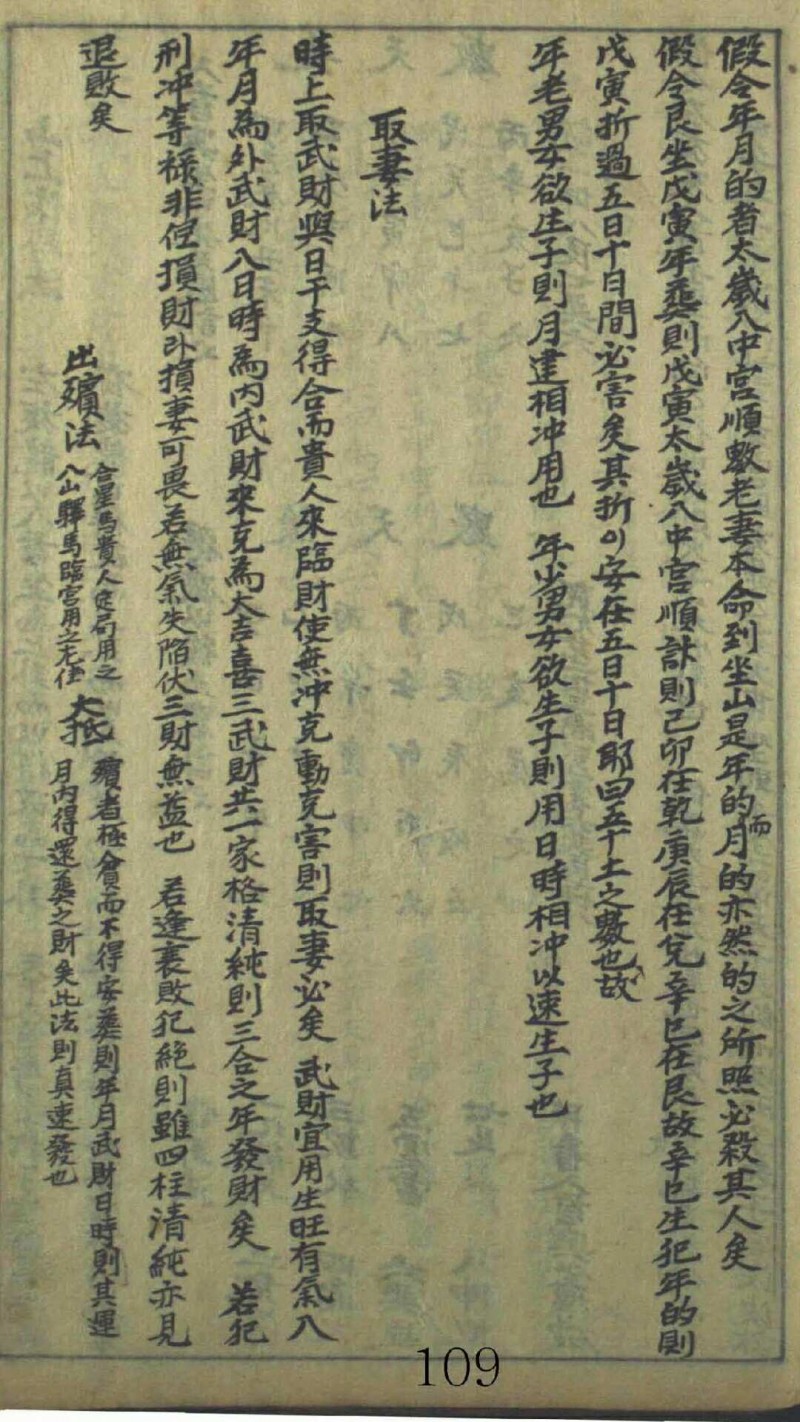 假令年月的者太歲入中宮順數老妻本命到坐山是年的而月的亦然的之所照必殺其人矣
假令艮坐戊寅年葬則戊寅太歲入中宮順計則己卯在乾庚辰在兌辛巳在艮故辛巳生犯年的則
戊寅折過五日十日間必害矣其折기安在五日十日耶曰五十土之數也故
年老男女欲生子則月建相冲用也 年少男女欲生子則用日時相冲以速生子也
取妻法
時上取武財與日干支得合而貴人來臨財使無冲克動克害則取妻必矣 武財宜用生旺有氣入
年月為外武財入日時為內武財來克為大吉喜三武財共一家格清純則三合之年發財矣 若犯
刑冲等祿非但損財外損妻可畏若無氣失陷伏三財無益也 若逢衰敗犯絕則雖四柱清純亦見
退敗矣
出殯法
合星馬貴人定局用之
八山驛馬臨宮用之尤佳
大抵
殯者極貧而不得安葬則年月武財日時則其運
月內得還葬之財矣此法則真速發也
109